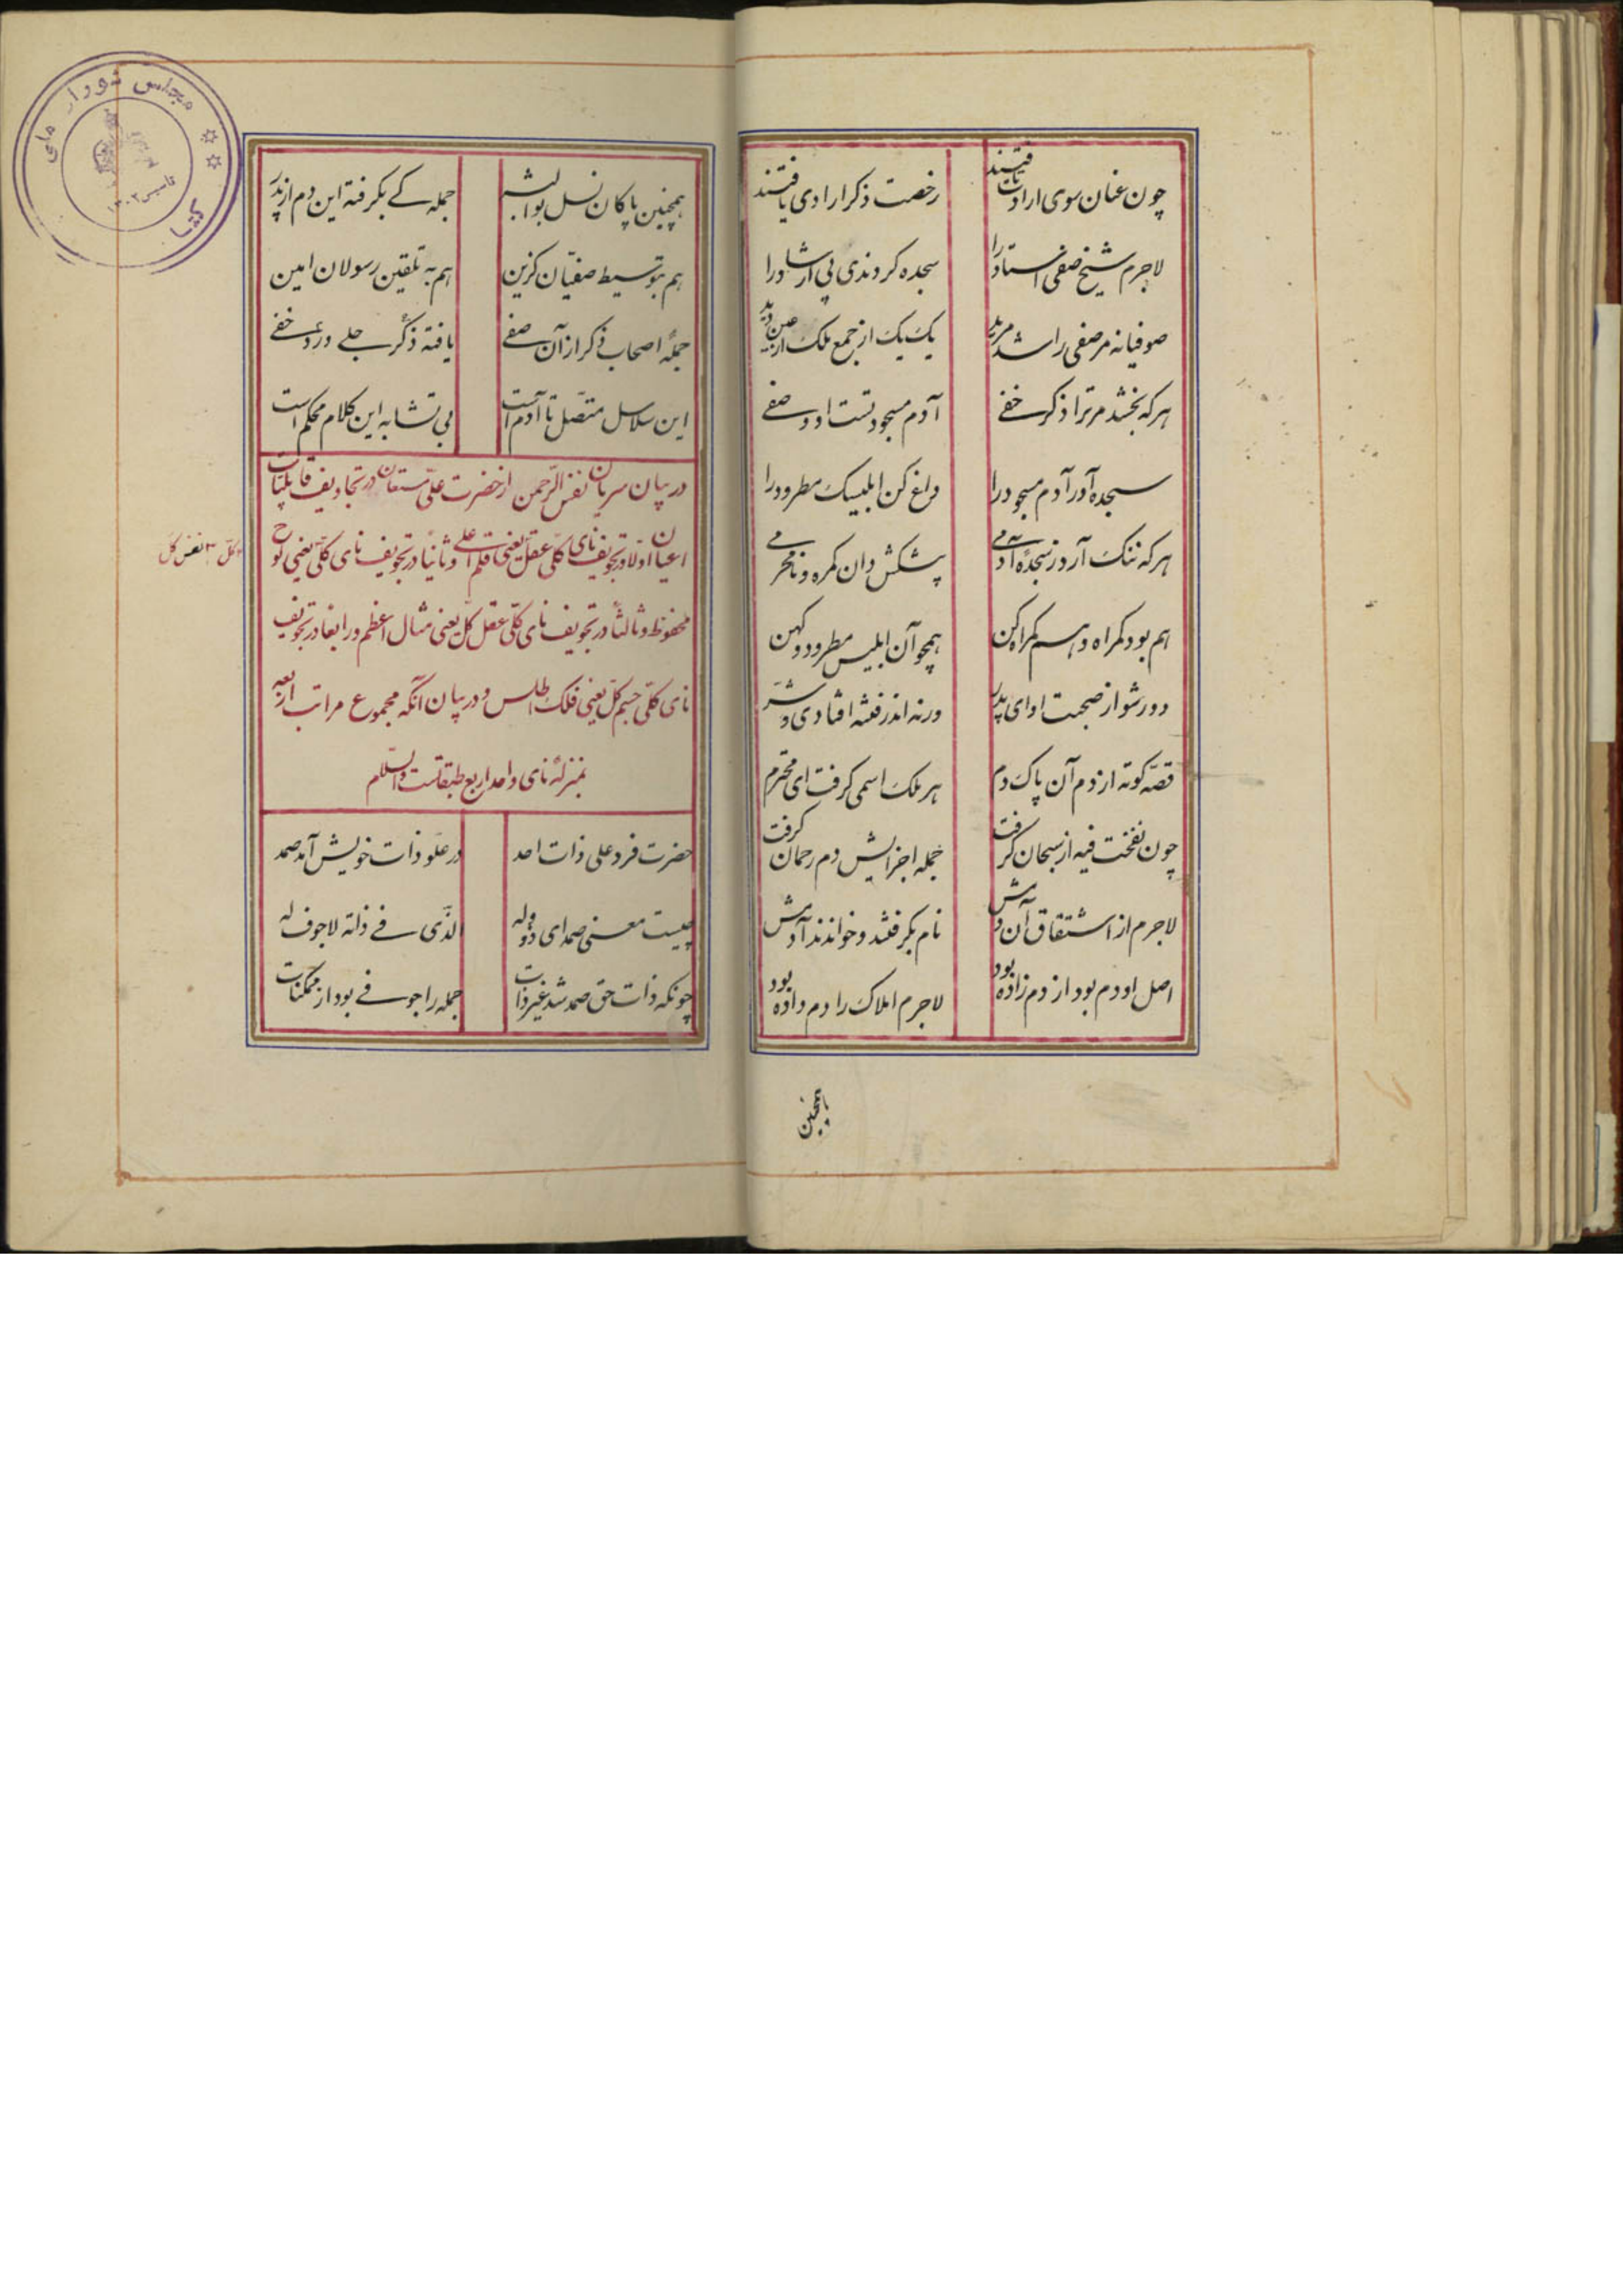 چون عنان سوی ارادت تافتند رخصت ذکر ارادی یافتند
لاجرم شیخ صفی استاد را سجده کردندی پی ارشاد را
صوفیانه مر صفی را شد مرید یک یک از جمع ملک از عین دید
هر که بخشد مر ترا ذکر خفی آدم مسجود تست او و صفی
سجده آور آدم مسجود را داغ کن ابلیسک مطرود را
هر که ننگ آرد ز سجدهٔ آدمی پیشکش دان گمره و نامحرمی
هم بود گمراه و هم گمراه کن همچو آن ابلیس مطرود کهن
دور شو از صحبت او ای پدر ورنه اندر فتنه افتادی و شر
قصه کوته از دم آن پاک دم هر ملک اسمی گرفت ای محترم
چون نفخت فیه از سبحان گرفت جمله اجزایش دم رحمان گرفت
لاجرم از اشتقاق آن دمش نام بگرفتند و خواندند آدمش
اصل او دم بود از دم زاده بود لاجرم املاک را دم داده بود
همچنین
همچنین پاکان نسل بوالبشر جمله کی بگرفته این دم از پدر
هم بتوسیط صفیان گزین هم به تلقین رسولان امین
جملهٔ اصحاب ذکر از آن صفی یافته ذکر جلی ورد خفی
این سلاسل متصل تا آدم است بی تشابه این کلام محکم است
در بیان سریان نفس الرحمن از حضرت علی مستعان در تجاویف قابلیات
اعیان اولا در تجویف نای کلی عقل یعنی قلم اعلی و ثانیا در تجویف نای کلی یعنی لوح
کل نفس کل
محفوظ و ثالثا در تجویف نای کلی عقل کل یعنی مثال اعظم و رابعا در تجویف
نای کلی جسم کل یعنی فلک اطلس و در بیان آنکه مجموع مراتب اربعه
بمنزلهٔ نای واحد اربع طبقاتست والسلام
حضرت فرد علی ذات احد در علو ذات خویش آمد صمد
چیست معنی صمد ای ذو وله الذی فی ذاته لا جوف له
چونکه ذات حق صمد شد غیر ذات جمله را جوفی بود از ممکنات
مجلس شورای ملی
کتا